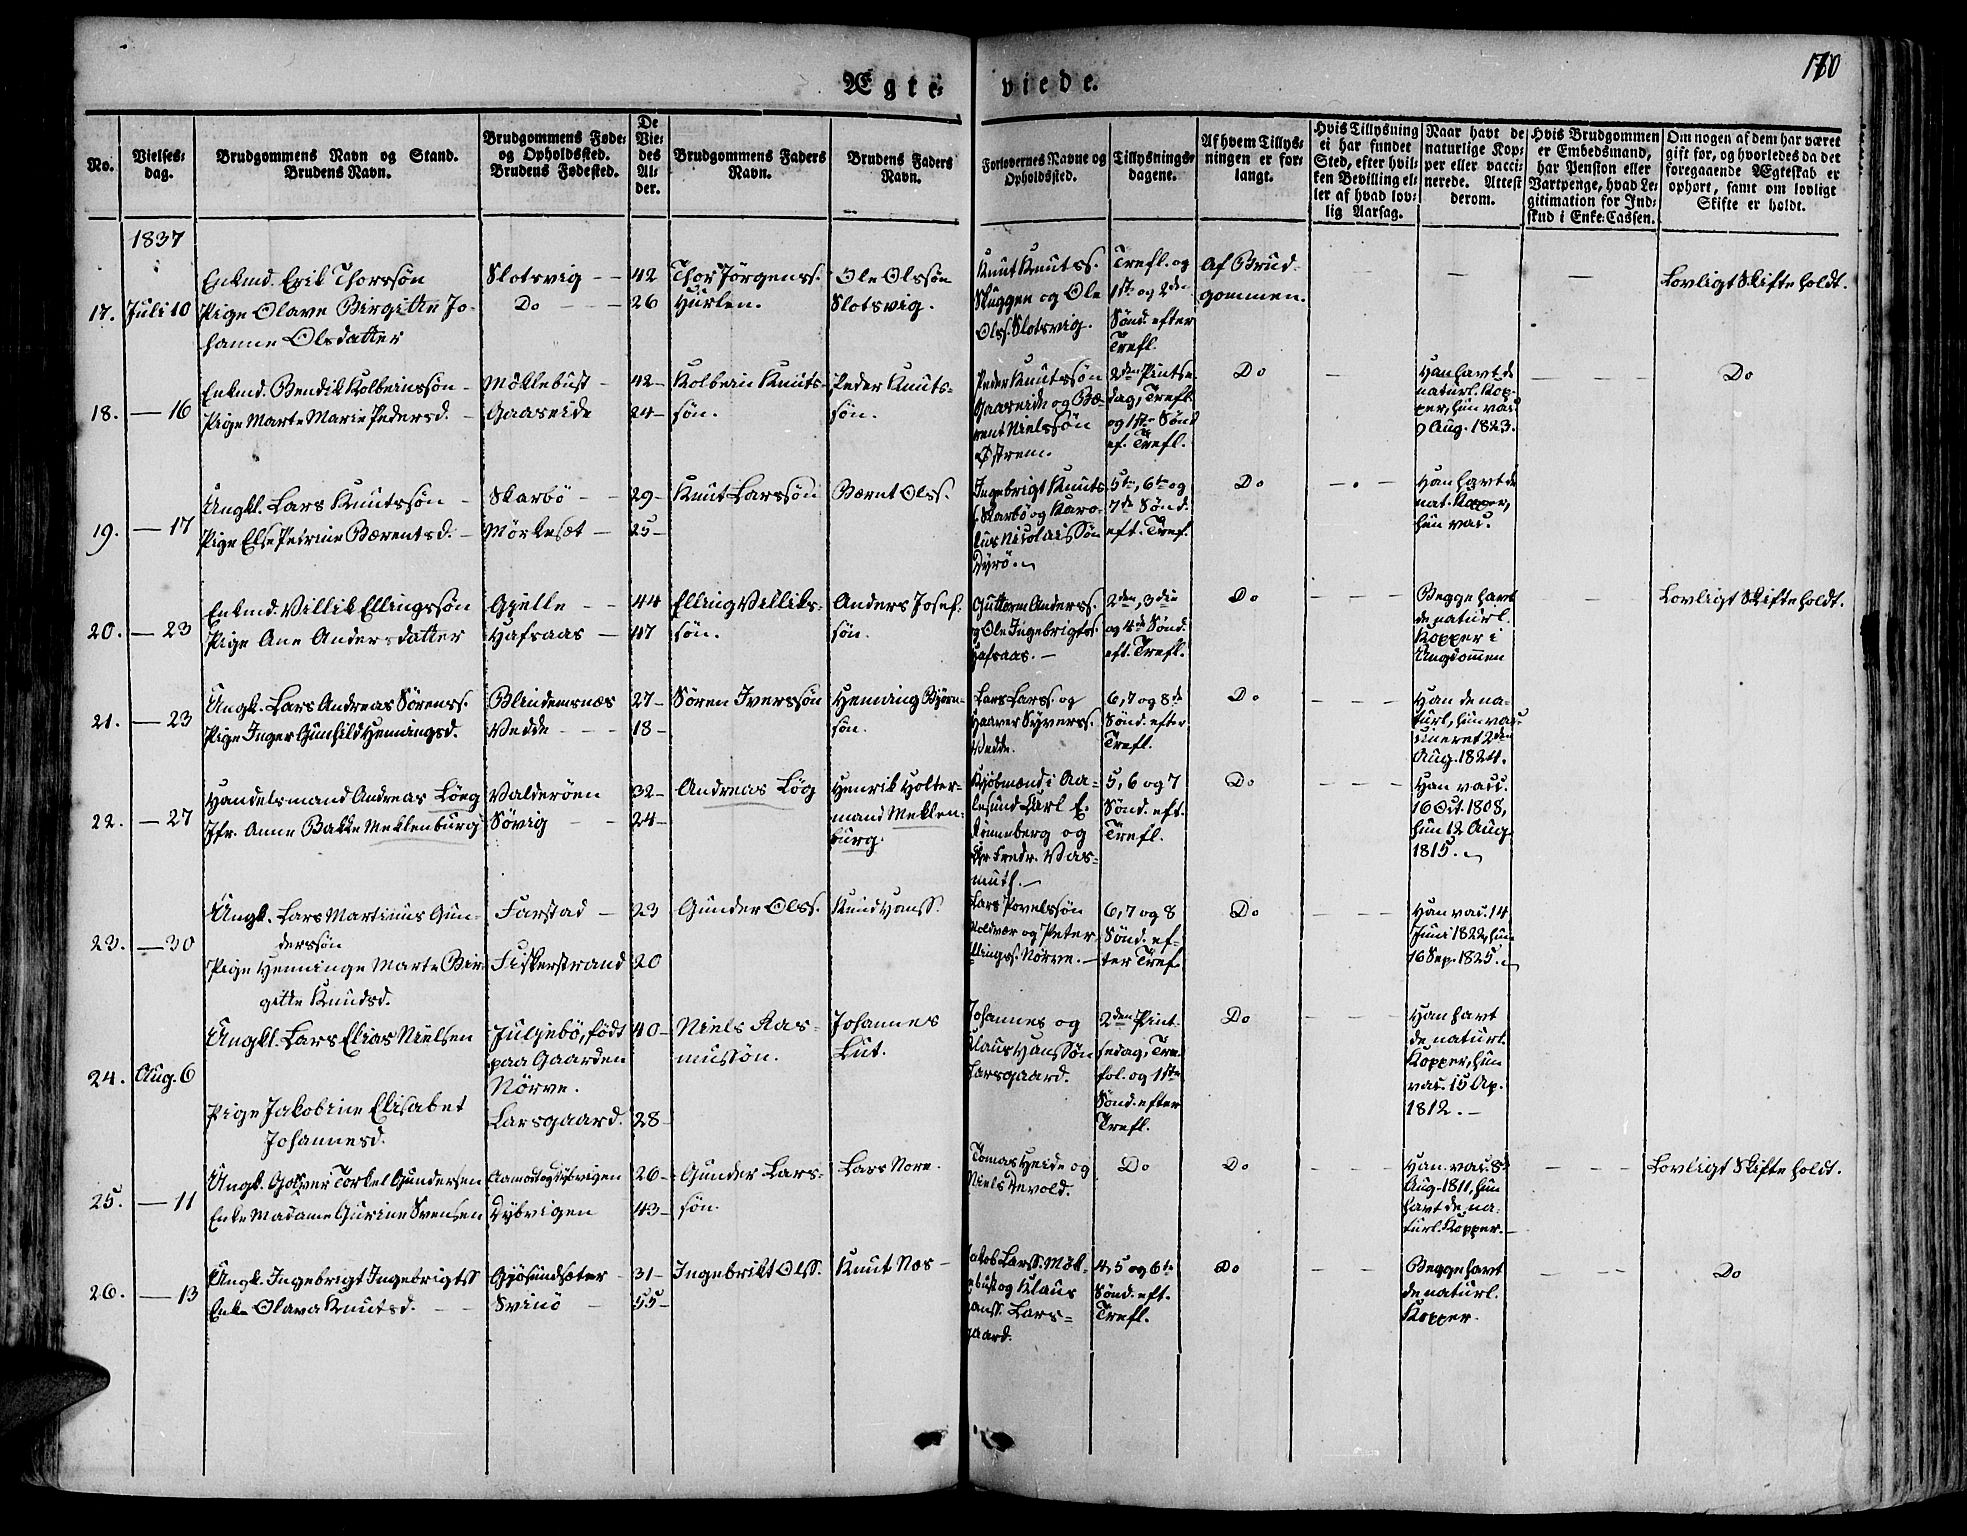 Ægte-
viede.
170
No.
Vielses-
dag.
Brudgommens Navn og Stand.
Brudens Navn.
Brudgommens Føde-
og Opholdssted.
Brudens Fødested.
De
Vie-
des
Al-
der.
Brudgommens Faders
Navn.
Brudens Faders
Navn.
Forlovernes Navne og
Opholdssted.
Tillysnings-
dagene.
Af hvem Tillys-
ningen er for-
langt.
Hvis Tillysning
ei har fundet
Sted, efter hvil-
ken Bevilling el-
ler af hvad lov-
lig Aarsag.
Naar havt de
naturlige Kop-
per eller vacci-
nerede. Attest
derom.
Hvis Brudgommen
er Embedsmand,
har Pension eller
Vartpenge, hvad Le-
gitimation for Ind-
skud i Enke-Cassen.
Om nogen af dem har været
gift før, og hvorledes da det
foregaaende Ægteskab er
ophørt, samt om lovligt
Skifte er holdt.
1837
17. Juli 10
Enkmd. Erik Thorssøn
Pige Olave Birgitte Jo-
hanne Olsdatter
Slotsvig
Do
42
26
Thor Jørgenss.
Hurlen.
Ole Olssøn
Slotsvig.
Knut Knutss.
Skuggen og Ole
Olss. Slotsvig.
Trefl. og
1ste og 2den
Sønd. efter
Trefl.
Af Brud-
gommen.
Lovligt Skifte holdt.
18. — 16
Enkmd. Bendik Kolbeinssøn
Pige Marte Marie Pedersd.
Møklebust
Gaaseide
42
24
Kolbein Knuts-
søn.
Peder Knuts-
søn.
Peder Knutssøn
Gaaseide og Bæ-
rent Nielssøn
Østrem.
2den Pintse
dag, Trefl.
og 1ste Sønd
ef. Trefl.
Do
Han havt de
naturl. Kop-
per, hun vac.
9 Aug. 1823.
Do
19. — 17
Ungkl. Lars Knutssøn
Pige Else Petrine Bærentsd.
Skarbø
Mørkesæt
29
25
Knut Larssøn
Bærnt Olss.
Ingebrigt Knuts
s. Skarbø og Karo-
lus Nicolaissøn
Dyrø.
5te, 6te og
7de Sønd.
eft. Tref.
Do
Han havt de
nat. Kopper,
hun vac.
20. — 23
Enkmd. Villik Ellingssøn
Pige Ane Andersdatter
Gjelle
Hafsaas
44
47
Elling Villiks-
søn.
Anders Josef-
søn.
Guttorm Anderss.
og Ole Ingebrigtss.
Hafsaas.
2den, 3die
og 4de Sønd.
eft. Trefl.
Do
Begge havt
de naturl.
Kopper i
Ungdommen
Lovligt Skifte holdt.
21. — 23
Ungk. Lars Andreas Sørenss.
Pige Inger Gunhild Henningsd.
Blindemsnæs
Vedde
27
18
Søren Iverssøn
Henning Bjørn-
søn.
Lars Larss. og
Haaver Syverss.
Vedde.
6, 7 og 8de
Sønd. efter
Trefl.
Do
Han de na-
turl., hun vac-
cineret 2den
Aug. 1824.
22. — 27
Handelsmand Andreas Løeg
Jfr. Anne Bakke Meklenburg
Valderøen
Søvig
32
24
Andreas Løg
Henrik Holter-
mand Meklen-
burg.
Kjøbmænd i Aa-
lesund Carl E.
Rønneberg og
Chr. Fredr. Vas-
muth.
5, 6 og 7
Sønd. eft.
Trefl.
Do
Han vacc.
16 Oct. 1808,
hun 12 Aug.
1815.
23. — 30
Ungk. Lars Martinus Gun-
derssøn
Pige Henninge Marte Bir-
gitte Knudsd.
Farstad
Fiskerstrand
23
20
Gunder Olss.
Knud Hanss.
Lars Povelssøn
Roldvær og Peter
Ellingss. Nørve.
6, 7 og 8
Sønd. ef-
ter Tref.
Do
Han vac. 14
Juni 1822, hun
16 Sep. 1825.
24. Aug. 6
Ungkl. Lars Elias Nielsen
Pige Jakobine Elisabet
Johannesd.
Julsebø, født
paa Gaarden
Nørve.
Larsgaard.
40
28
Niels Ras-
mussøn.
Johannes
Lut.
Johannes og
Klaus Hanssøn
Larsgaard.
2den Pint-
sedag, Tre-
fol. og 1ste
Sønd. efter
Trefl.
Do
Han havt
de naturl.
Kopper, hun
vac. 15 Ap.
1812.
25. — 11
Ungk. Gotver Torkel Gundersen
Enke Madame Gurine Svensen
Aamot og Dybvigen
Dybvigen
26
43
Gunder Lars-
søn.
Lars Nore.
Tomas Heide og
Niels Devold.
Do
Do
Han vac. 8de
Aug. 1811, hun
havt de na-
turl. Kopper.
Lovligt Skifte holdt.
26. — 13
Ungk. Ingebrigt Ingebrigtss
Enke Olava Knutsd.
Gjøsundsæter
Svinø
31
55
Ingebrikt Olss.
Knut Næs
Jakob Larss. Møk-
lebust og Klaus
Hanss. Lars-
gaard.
4, 5 og 6te
Sønd. eft.
Trefl.
Do
Begge havt
de naturl.
Kopper.
Do